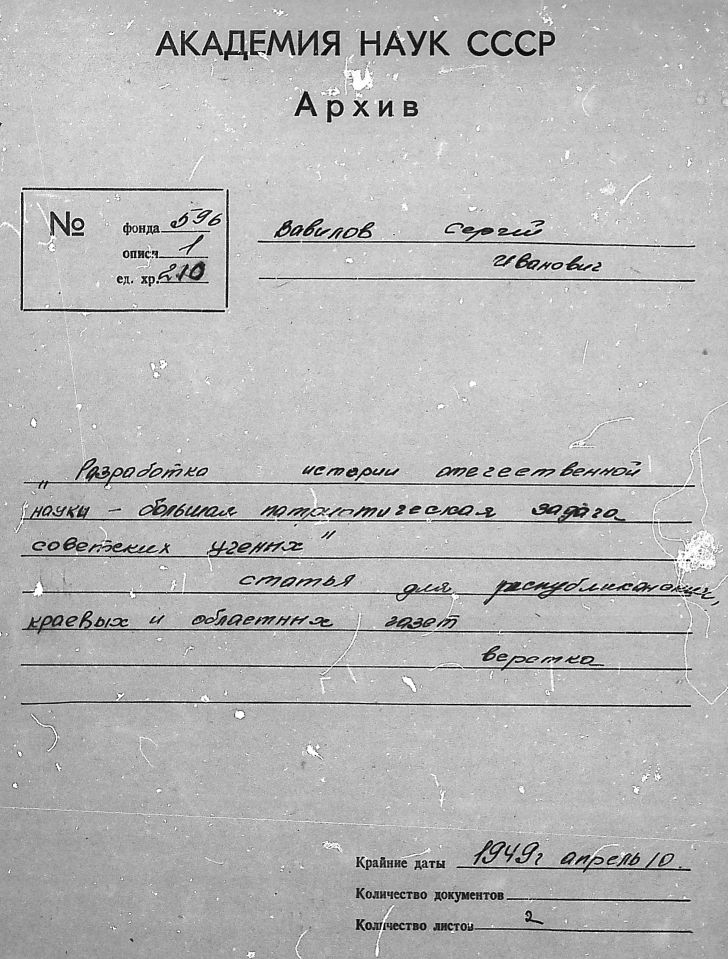 АКАДЕМИЯ НАУК СССР
Архив
№ фонда 596
описи 1
ед. хр. 210
Вавилов Сергей
Иванович
„Разработка истории отечественной
науки – большая патриотическая задача
советских ученых"
статья для республиканских,
краевых и областных газет
верстка
Крайние даты 1949г апрель 10.
Количество документов
Количество листов 2